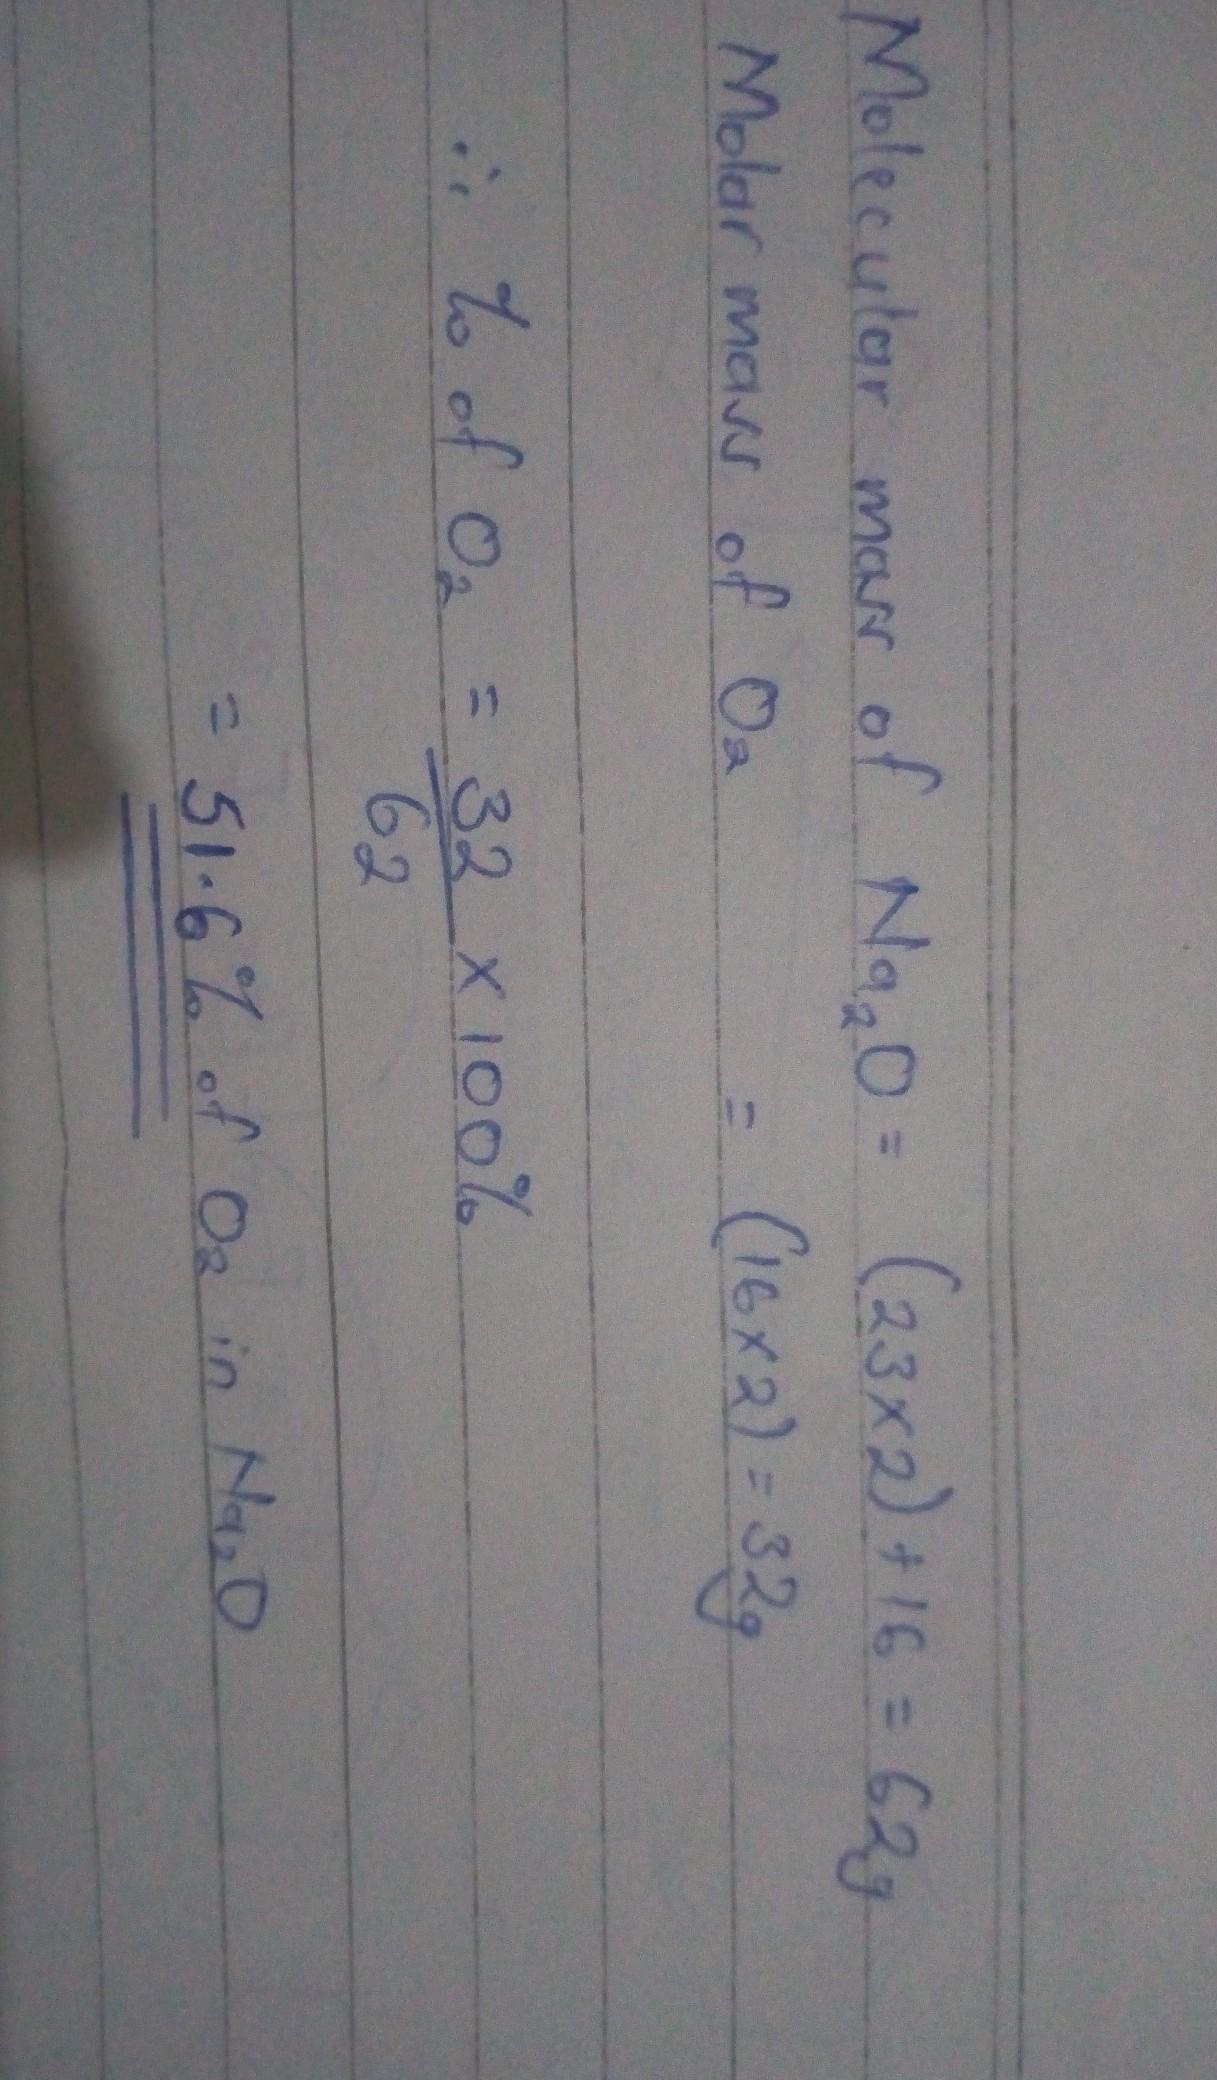 Molecular mass of Na₂O = (23×2)+16 = 62g
Molar mass of O₂ = (16×2) = 32g
∴ % of O₂ = 32/62 × 100%
= 51.6% of O₂ in Na₂O